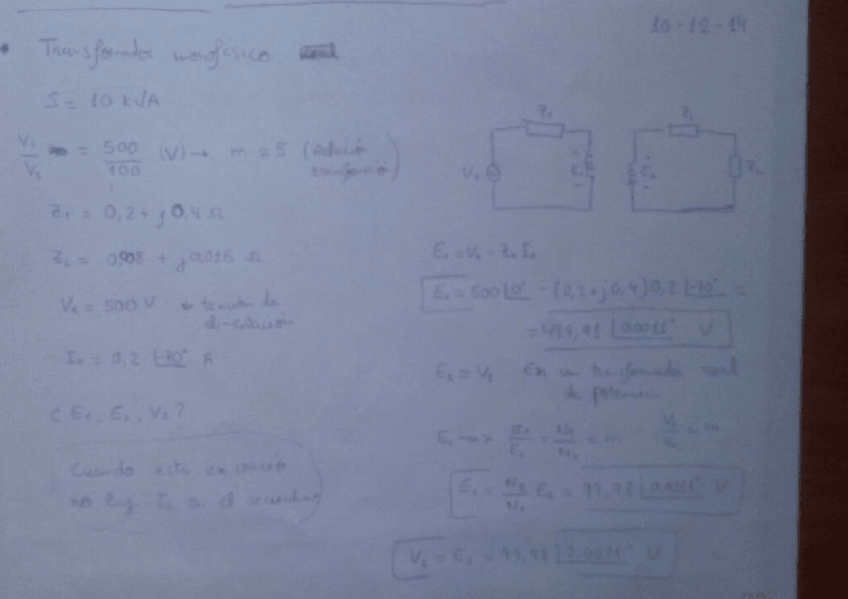 10-12-14
• Transformador monofásico real
S = 10 kVA
V₁/V₂ = 500/100 (V) → m = 5 (relación transformación)
Z₁ = 0,2 + j 0,4 Ω
Z₂ = 0,008 + j 0,016 Ω
V₁ = 500 V ← tensión de alimentación
I₀ = 0,2 ∟-70° A
¿ E₁, E₂, V₂ ?
Cuando está en vacío
no hay I₂ en el secundario
Z₁ Z₂
V₁ E₁ E₂
E₁ = V₁ - Z₁ I₀
E₁ = 500 ∟0° - (0,2 + j 0,4) 0,2 ∟-70° =
= 499,91 ∟0,0011° V
E₂ = V₂ En un transformador real
de potencia
E₂ → E₁/E₂ = N₁/N₂ = m V₁/V₂ = m
E₂ = N₂/N₁ E₁ = 99,98 ∟0,0011° V
V₂ = E₂ = 99,98 ∟0,0011° V